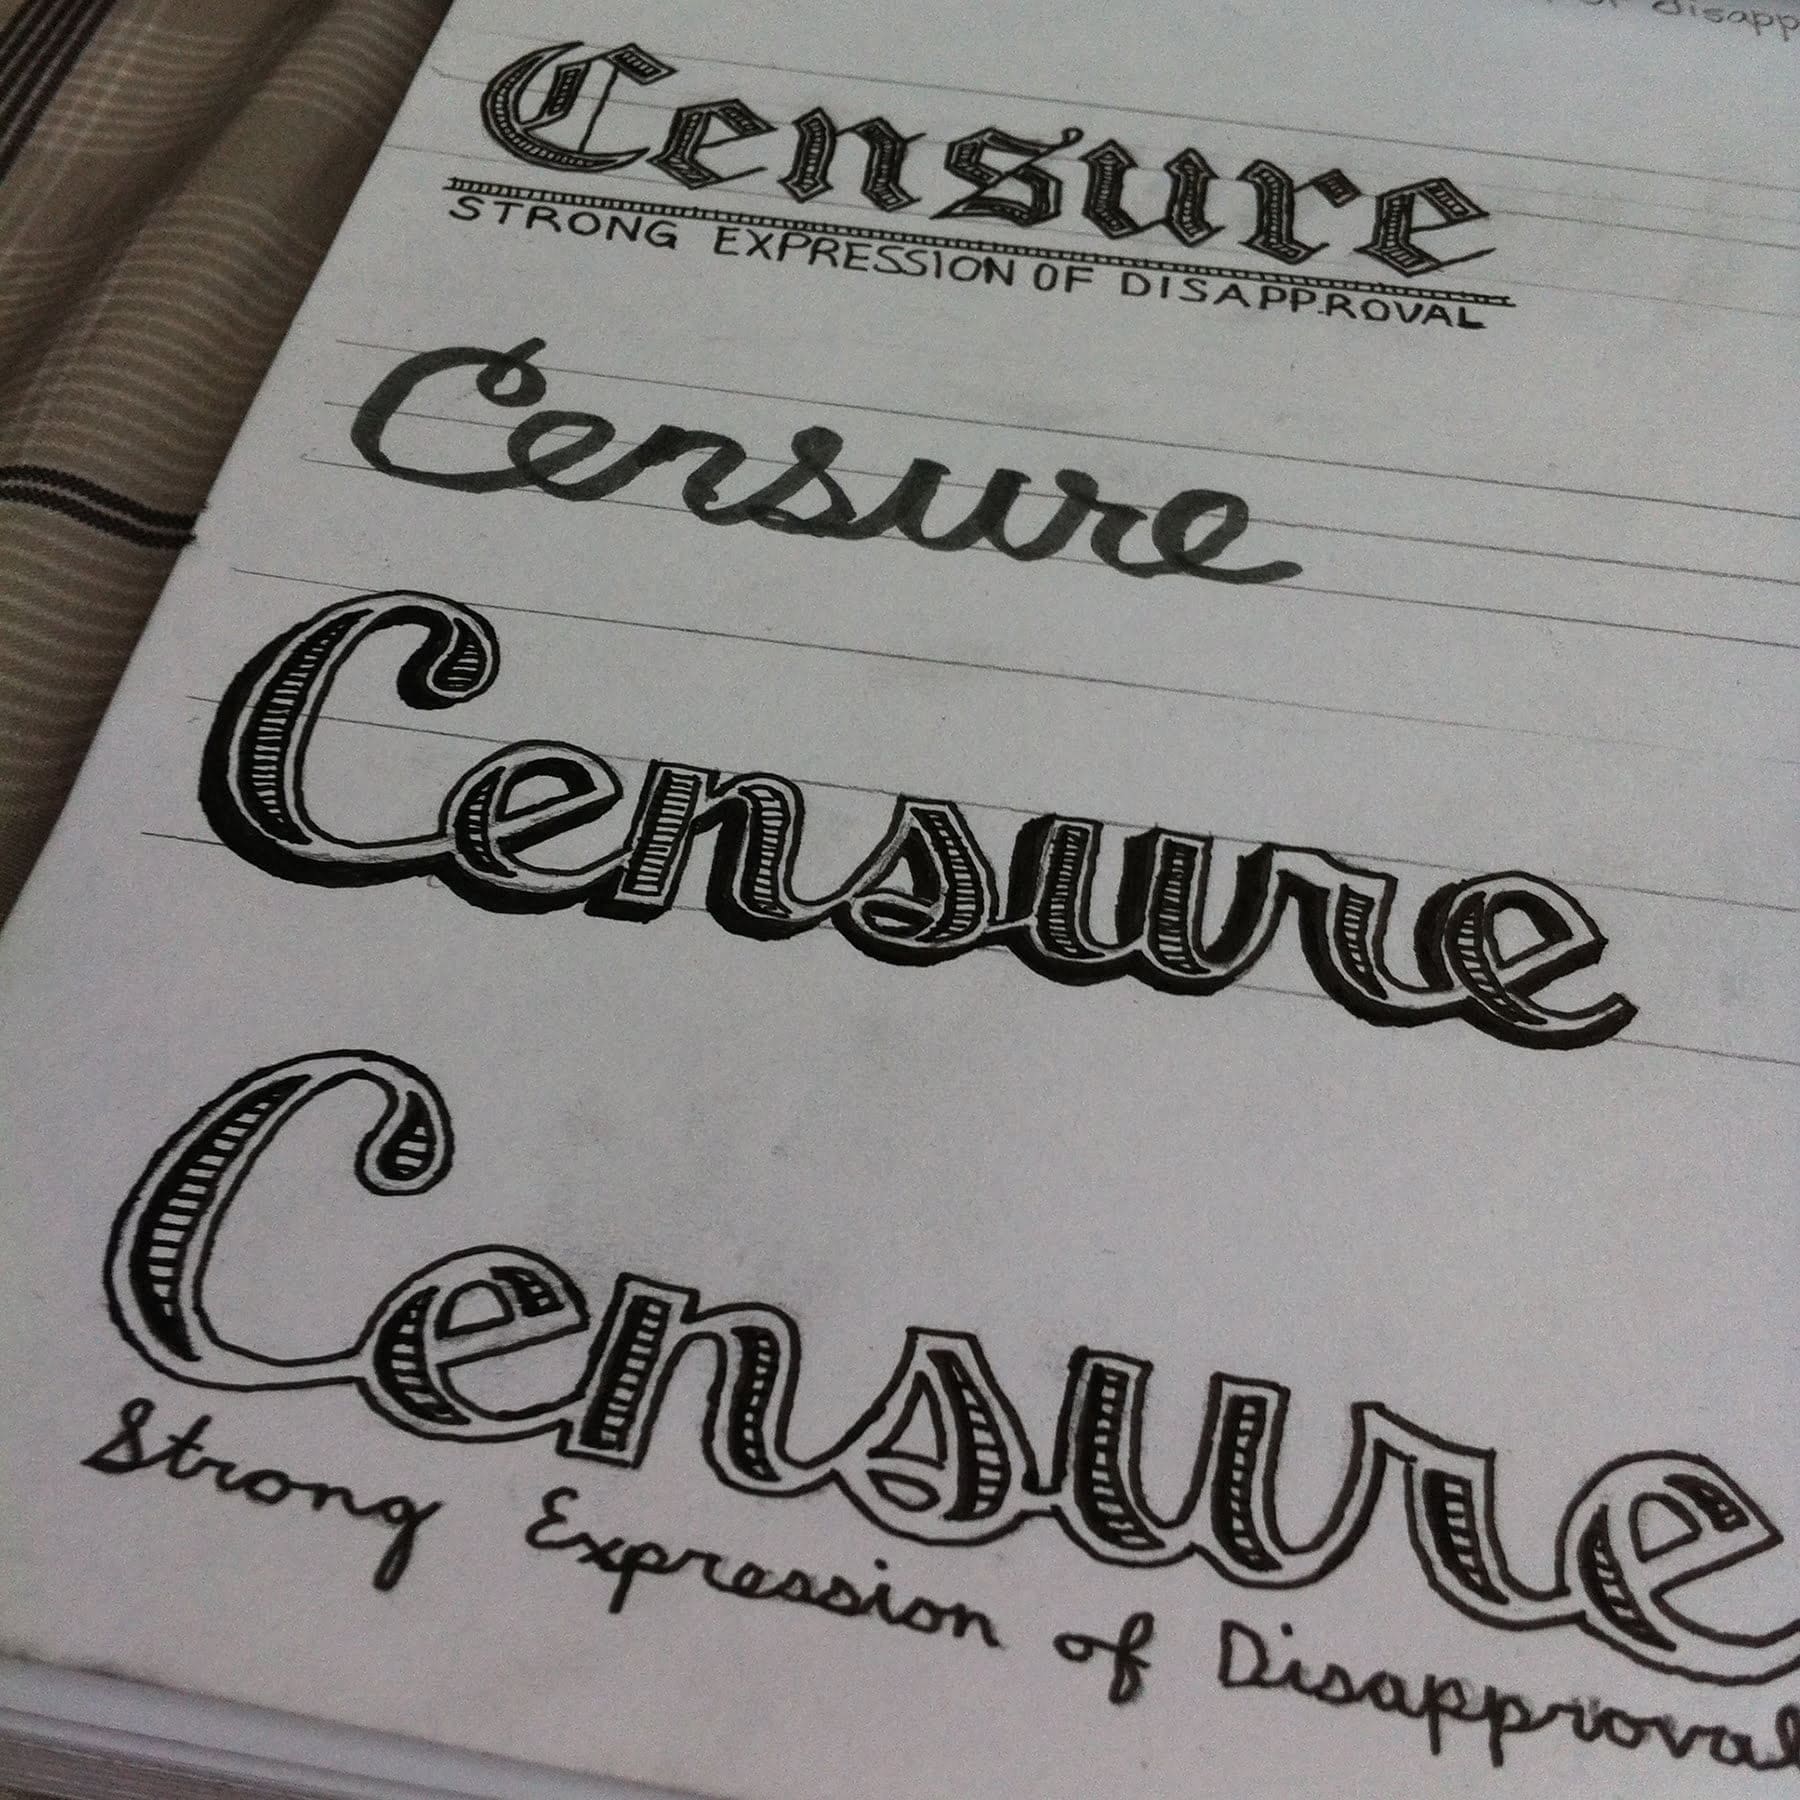 disapp
Censure
STRONG EXPRESSION OF DISAPPROVAL
Censure
Censure
Censure
Strong Expression of Disapproval